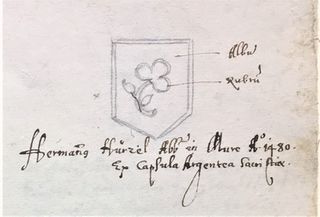 Albu
Rubrū
Hermañg Hürzel Abb in Mure Aº 1480.
Ex Capsula Argentea Sacristiæ.